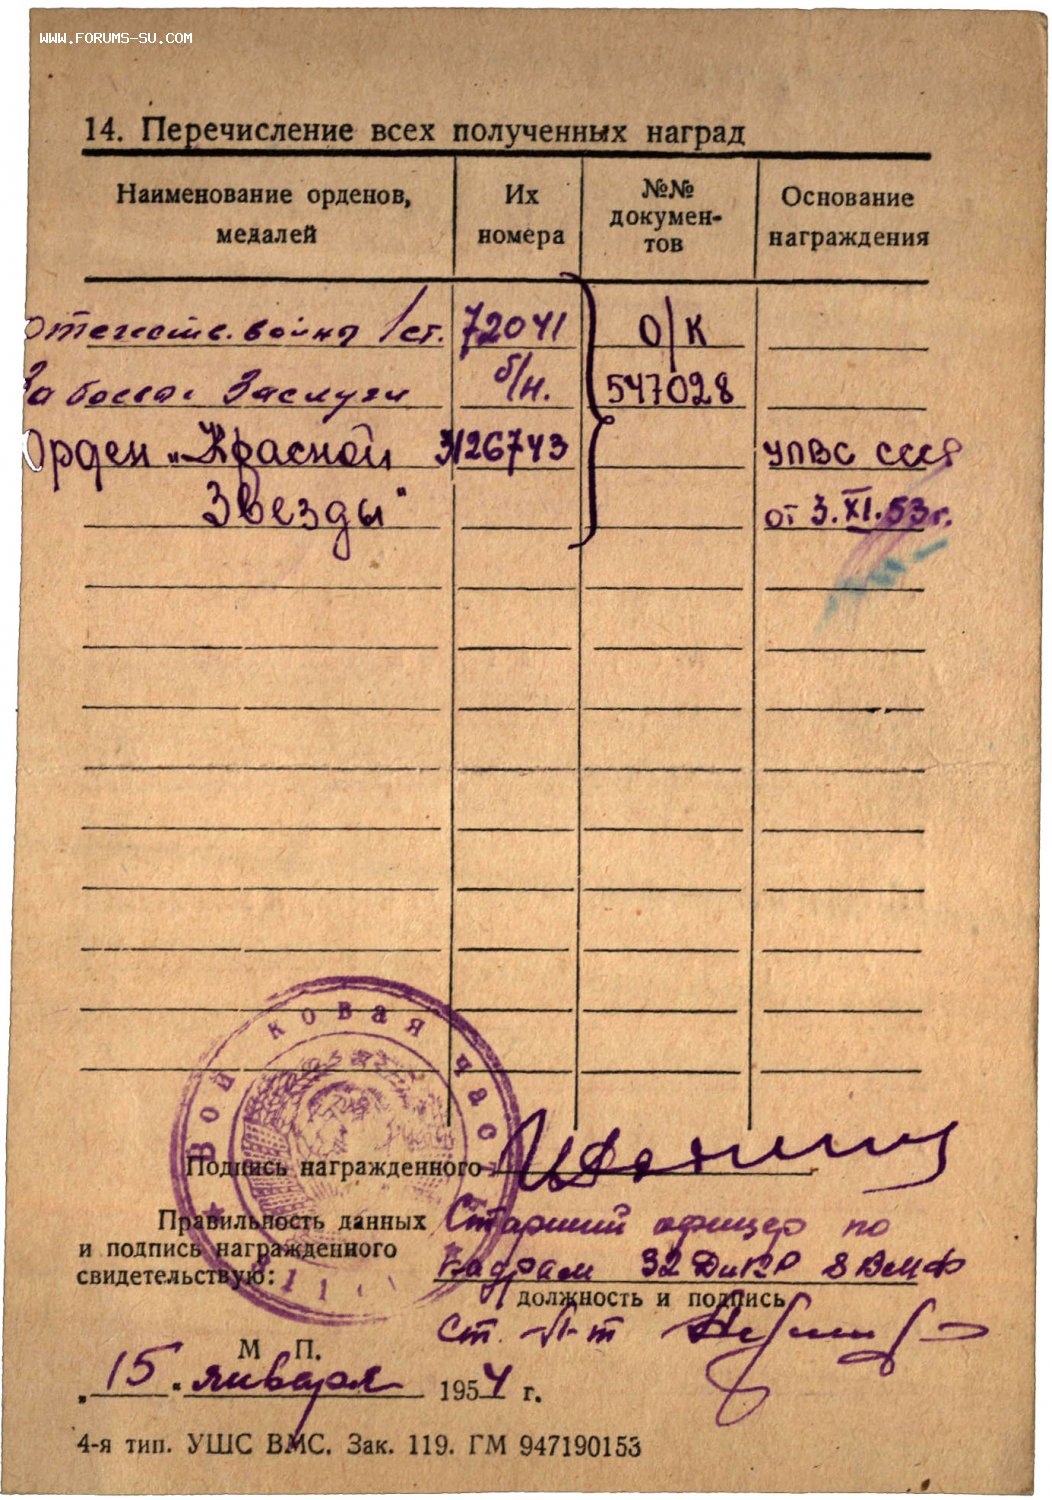 WWW.FORUMS-SU.COM
14. Перечисление всех полученных наград
Наименование орденов, медалей
Их номера
№№ докумен-тов
Основание награждения
Отечеств. войны 1 ст. 72041 О/К
За боевые Заслуги б/н. 547028
Орден „Красной 3126743 УПВС СССР
Звезды" от 3.XI.53 г.
Войсковая час
Подпись награжденного
Правильность данных Старший офицер по
и подпись награжденного
свидетельствую: Кадрам 32 ДиКР 8 ВМФ
должность и подпись
Ст. Л-т
М П.
„15" января 1954 г.
4-я тип. УШС ВМС. Зак. 119. ГМ 947190153